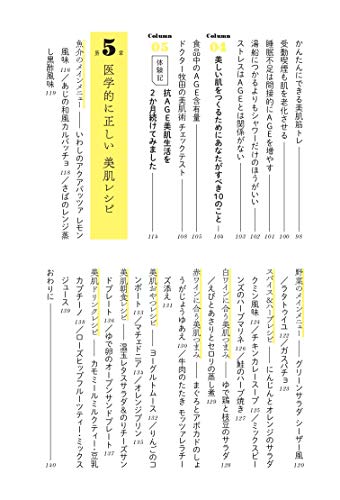 かんたんにできる美肌筋トレ 98
受動喫煙も肌を老化させる 100
睡眠不足は間接的にAGEを増やす 101
湯船につかるよりもシャワーだけのほうがいい 102
ストレスはAGEとは関係がない 103
Column 04 美しい肌をつくるためにあなたがすべき10のこと 104
食品中のAGE含有量 105
ドクター牧田の美肌術 チェックテスト 108
Column 05 体験記 抗AGE美肌生活を
2か月続けてみました 114
第5章 医学的に正しい 美肌レシピ
魚介のメインメニュー――いわしのアクアパッツァ レモン
風味 118/あじの和風カルパッチョ 118/さばのレンジ蒸
し黒酢風味 119
野菜のメインメニュー――グリーンサラダ シーザー風 120
/ラタトゥイユ 122/ガスパチョ 123
スパイス&ハーブレシピ――にんじんとオレンジのサラダ
クミン風味 124/チキンカレースープ 125/ミックスビー
ンズのハーブマリネ 126/鮭のハーブ焼き 127
白ワインに合う美肌つまみ――ゆで鶏と枝豆のサラダ 128
/えびとあさりとセロリの蒸し煮 129
赤ワインに合う美肌つまみ――まぐろとアボカドのしょ
うがじょうゆあえ 130/牛肉のたたき モッツァレラチー
ズ添え 131
美肌おやつレシピ――ヨーグルトムース 132/りんごのコ
ンポート 133/マチェドニア 134/オレンジプリン 135
美肌朝食レシピ――温玉レタスサラダ&のりチーズサン
ドプレート 136/ゆで卵のオープンサンドプレート 137
美肌ドリンクレシピ――カモミールミルクティー・豆乳
カプチーノ 138/ローズヒップフルーツティー・ミックス
ジュース 139
おわりに 140